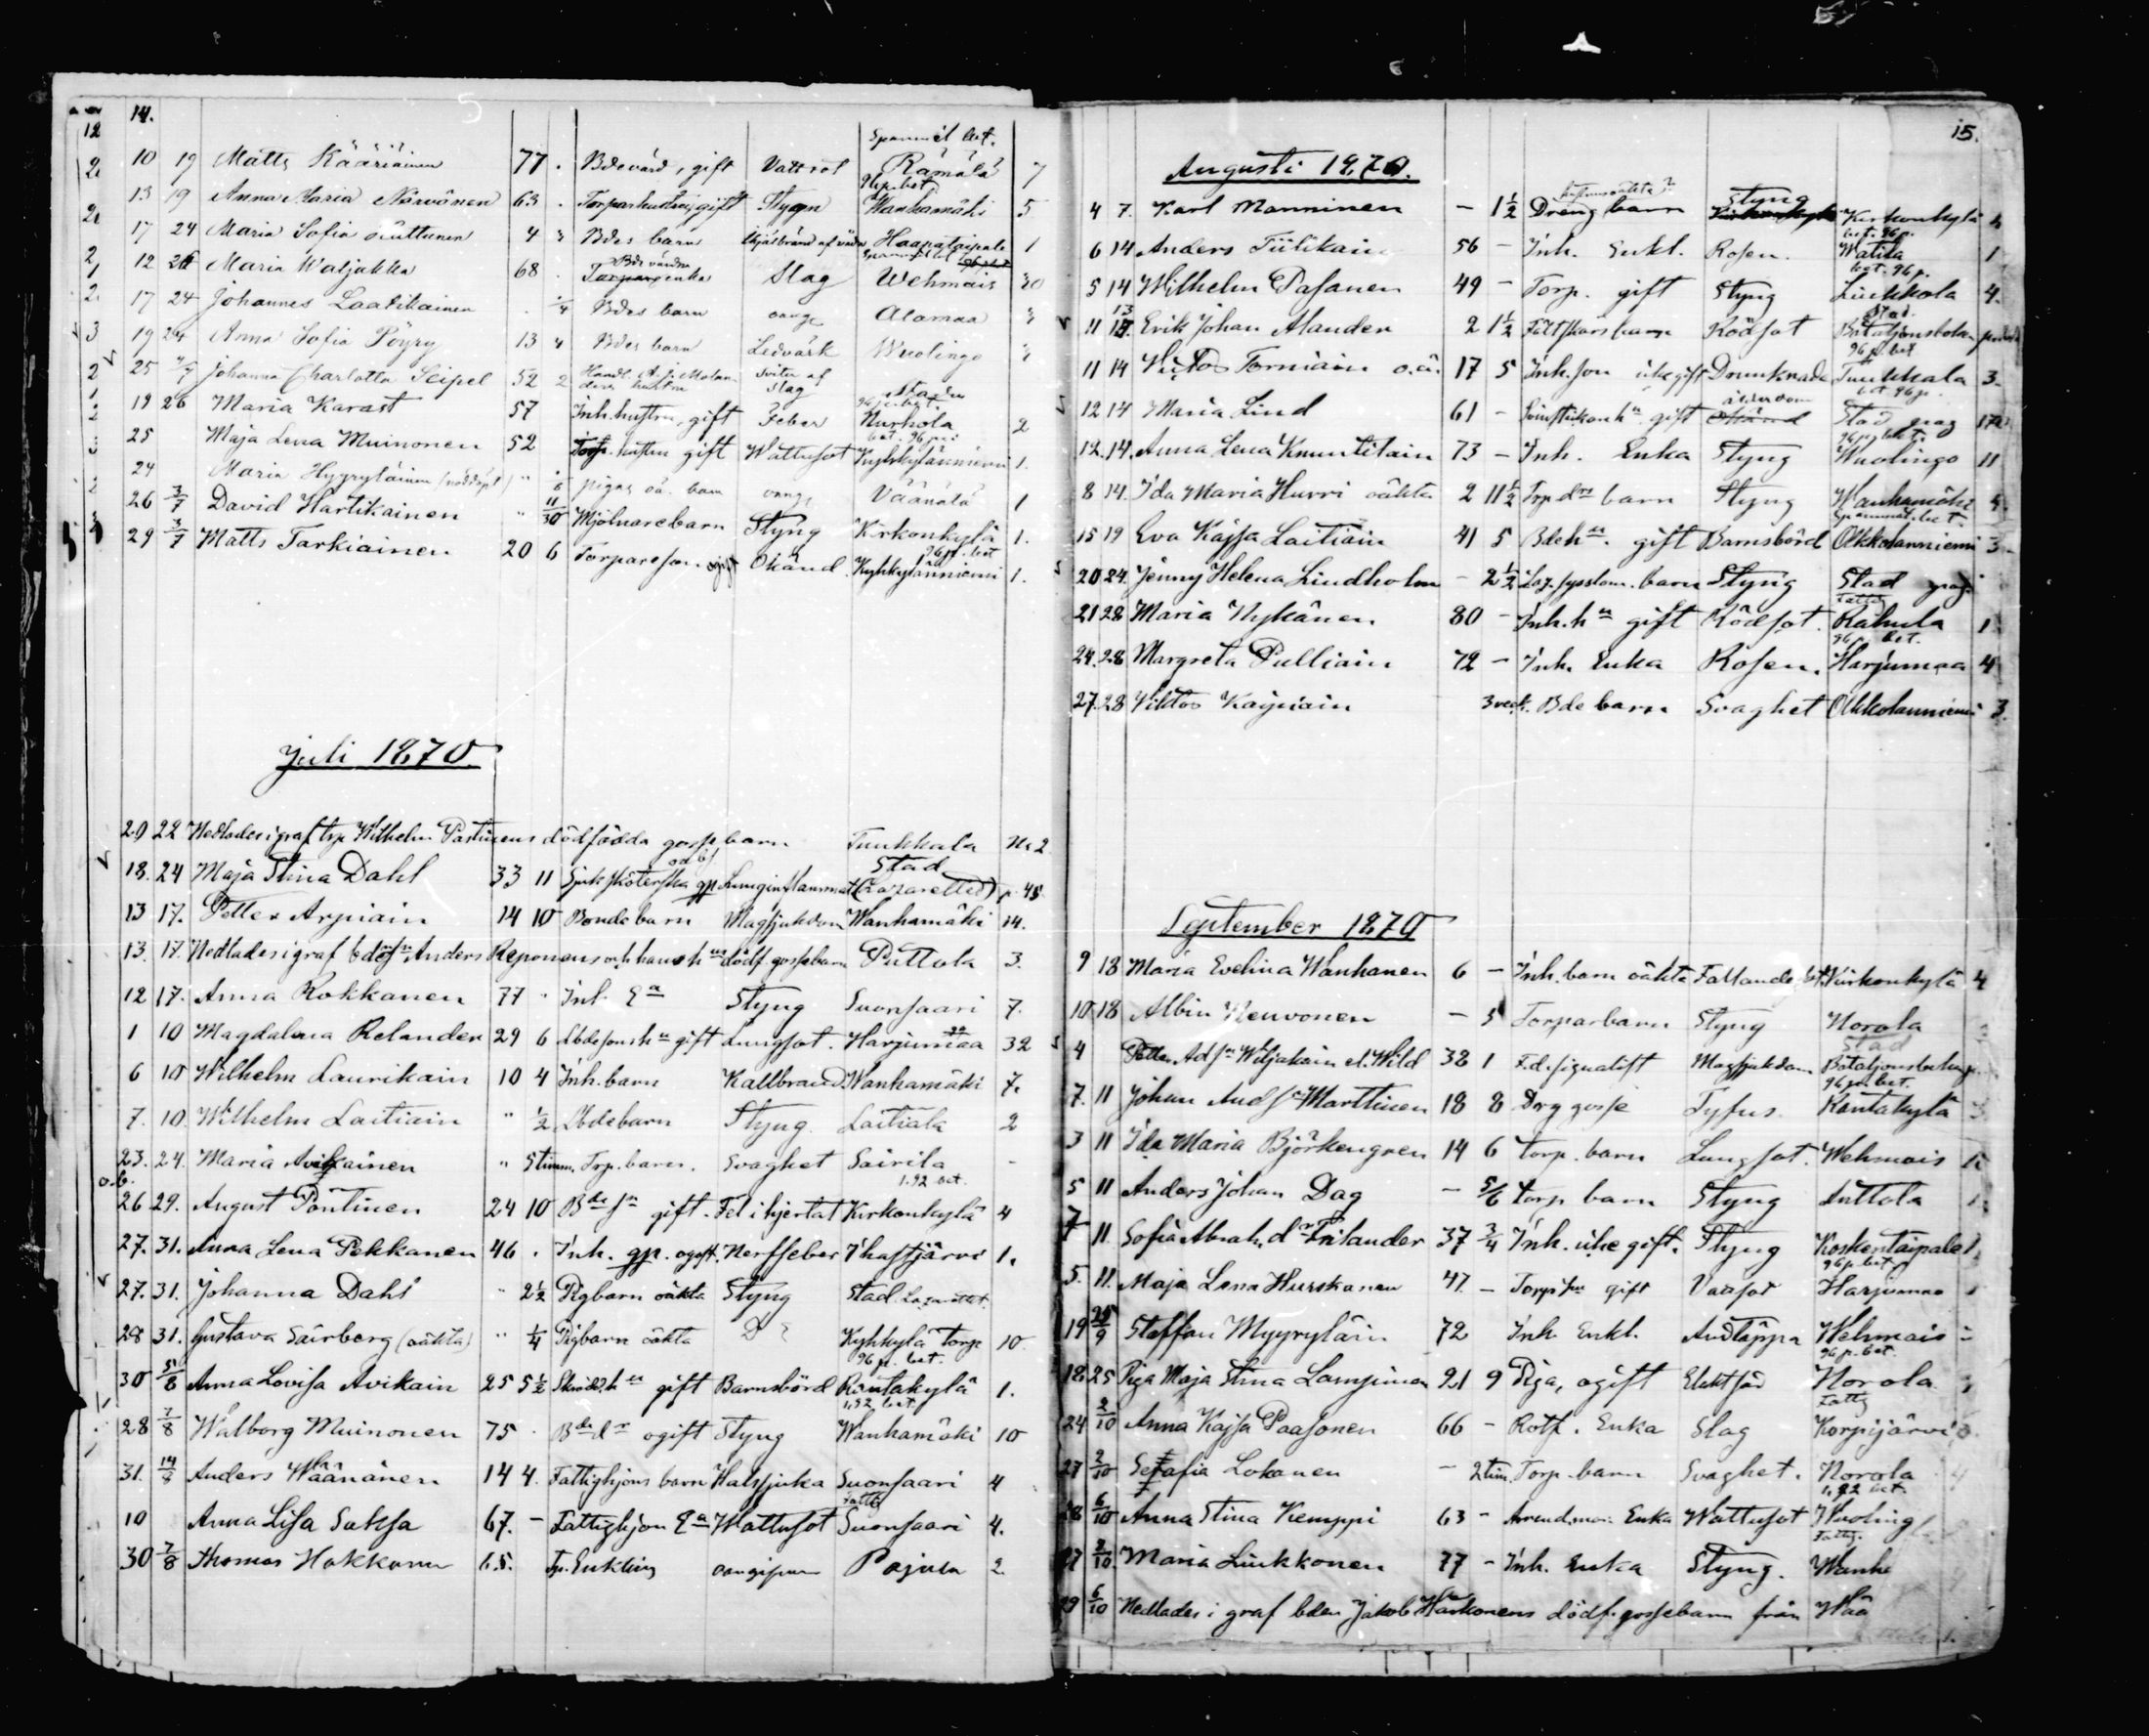 14.
12
Spanmål bet.
2 10 19 Matts Kääriäinen 77 . Bdevärd, gift Vattsot Rämälä 7
96 p. bet
2 13 19 Anna Maria Närvänen 63 . Torparhustru, gift Styng Wanhamäki 5
2 17 24 Maria Sofia 4 3 Bdes barn Haapataipale 1
Bdevärdes
2 12 26 Maria Waljakka 68 . enka Slag Wehmais 30
2 17 24 Johannes Laatikainen . 1/4 Bdes barn oang Alamaa 3
3 19 24 Anna Sofia Pöyry 13 4 Bdes barn Ledvärk Wuolingo
2 25 4/7 Johanna Charlotta Seipel 52 2 Handl. A. J. Molanders hustru Svite af slag Staden
96 p. bet.
19 26 Maria Karast 57 Inh. hustru, gift Feber Nurhola 2
bet. 96 pi
25 Maja Lena Muinonen 52 Torp. hustru gift Wattusot Kyhkylänniemi 1.
24 Maria Hyyryläinen (nöddöpt) " pigas oä. barn oang Väänälä 1
26 3/7 David Hartikainen " 11/30 Mjölnarebarn Styng Kirkonkylä 1.
96 p. bet
29 3/7 Matts Tarkiainen 20 6 Torpareson ogift Okänd Kyhkylänniemi 1.
Juli 1870.
20 22 Nedlades i graf trp Wilhelm Pöntinens dödfödda gossebarn Tuukkala N. 2
18. 24 Maja Stina Dahl 33 11 Sjuksköterska gp Lunginflammat Stad (Lazarettet) p. 45.
13 17. Petter Arpiain 14 10 Bondebarn Magsjukdom Wanhamäki 14.
13. 17. Nedlades i graf bdesn Anders Reponens och hans hus dödf. gossebarn Puttola 3.
12 17. Anna Rokkanen 77 " Inh. Ea Styng Suonsaari 7.
1 10 Magdalena Relander 29 6 Lbdesons hu gift Lungsot. Harjumaa 32
6 10 Wilhelm Laurikain 10 4 Inh. barn Kallbrand Wanhamäki 7.
7. 10. Wilhelm Laitiain " 1/2 Lbdebarn Styng Laitiala 2
23. 24. Maria Avikainen " 5 timm. Trp. barn. Svaghet Sairila -
1.92 bet.
o.b. 26 29. August Pöntinen 24 10 Bde sn gift. Fel i hjertat Kirkonkylä 4
27. 31. Anna Lena Pekkanen 46 . Inh. gp. ogift. Nerffeber Ihastjärvi 1.
27. 31. Johanna Dahl " 2 1/2 Pigbarn oäkta Styng Stad Lazarettet.
28 31. Gustava Säirberg (oäkta) " 1/4 Pigbarn oäkta D Kyhkylä torp 10.
96 p. bet.
30 5/8 Anna Lovisa Avikain 25 5 1/2 Skrädd. hu gift Barnsbörd Rantakylä 1.
1,92 bet.
28 7/8 Walborg Muinonen 75 . Bde dr ogift Styng Wanhamäki 10
31. 14/8 Anders Wäänänen 14 4. Fattighjons barn Halssjuka Suonsaari 4
fattig
10 Anna Lisa Saksa 67. - Fattighjon Ea Wattusot Suonsaari 4.
30 7/8 Thomas Hokkanen 65. Tp. Enkling oangifven Pajula 2.
15.
Augusti 1870.
4 7. Karl Manninen - 1 1/2 Dreng barn Styng Kirkonkylä 4
bet. 96 p.
6 14 Anders Tiilikain 56 - Inh. Enkl. Rosen. Watila 1
bet. 96 p.
5 14 Wilhelm Pasanen 49 - Torp. gift Styng Liukkola 4.
Stad.
11 13 Erik Johan Alander 2 1 1/2 Fältskärs barn Rödsot Bataljonsbolen
96 p. bet
11 14 Viktor Torniain o.ä. 17 5 Inh. son icke gift Drunknade Tuukkala 3.
bet 96 p.
12 14 Maria Lind 61 - gift ålderdom Stad pag 172
96 p. bet.
12. 14. Anna Lena Knuutilain 73 - Inh. Enka Styng Wuolingo 11
8 14. Ida Maria Hurri oäkta 2 11 1/2 Trp. drs barn Styng Wanhamäki 4.
Spannmål bet.
15 19 Eva Kajsa Laitiain 41 5 Bde hu. gift Barnsbörd Olkkolanniemi 3.
20 24. Jenny Helena Lindholm - 2 1/2 Laz. sysslom. barn Styng Stad pag.
Fattig
21 28 Maria Nykänen 80 - Inh. hu gift Rödsot. Rahula 1
96 p. bet.
24. 28 Margreta Pulliain 72 - Inh. Enka Rosen. Harjumaa 4
27. 28 Viktor Kaipiain 3 veck. Bde barn Svaghet Olkkolanniemi 3.
September 1870
9 18 Maria Evelina Wanhanen 6 - Inh. barn oäkta Fallande sot. Kirkonkylä 4
10 18 Albin Neuvonen - 5 Torparbarn Styng Norola
Stad
4 Petter Adsn Wiljakain el. Wild 38 1 F.d. signalist Magsjukdom Bataljonsbolen
96 p. bet.
7. 11 Johan Andsn Marttinen 18 8 Drg gosse Tyfus. Rantakylä 3
3 11 Ida Maria Björkengren 14 6 torp. barn Lungsot. Wehmais
5 11 Anders Johan Dag - 5/6 torp barn Styng Anttola 1.
7 11 Sofia Abrah. dr Frilander 37 3/4 Inh. icke gift. Styng Koskentaipale 1.
96 p. bet
5. 11. Maja Lena Hurskanen 47 - Torps hu gift Vattsot Harjumaa
19 25/9 Staffan Myyryläin 72 Inh. Enkl. Andtäppa Wehmais
96 p. bet.
18 25 Piga Maja Stina Lampinen 21 9 Piga, ogift Norola
Fattig
24 2/10 Anna Kajsa Paasonen 66 - Rotf. Enka Slag Korpijärvi
27 2/10 Serafia Lokanen - 2 tim. Torp. barn Svaghet. Norola 4
1,92 bet.
28 6/10 Anna Stina Kemppi 63 - Arrend. Enka Wattusot Wuoling
Fattig.
27 2/10. Maria Liukkonen 77 - Inh. Enka Styng. Wanha
29 6/10 Nedlades i graf bden Jakob Härkönens dödf. gossebarn från Wää